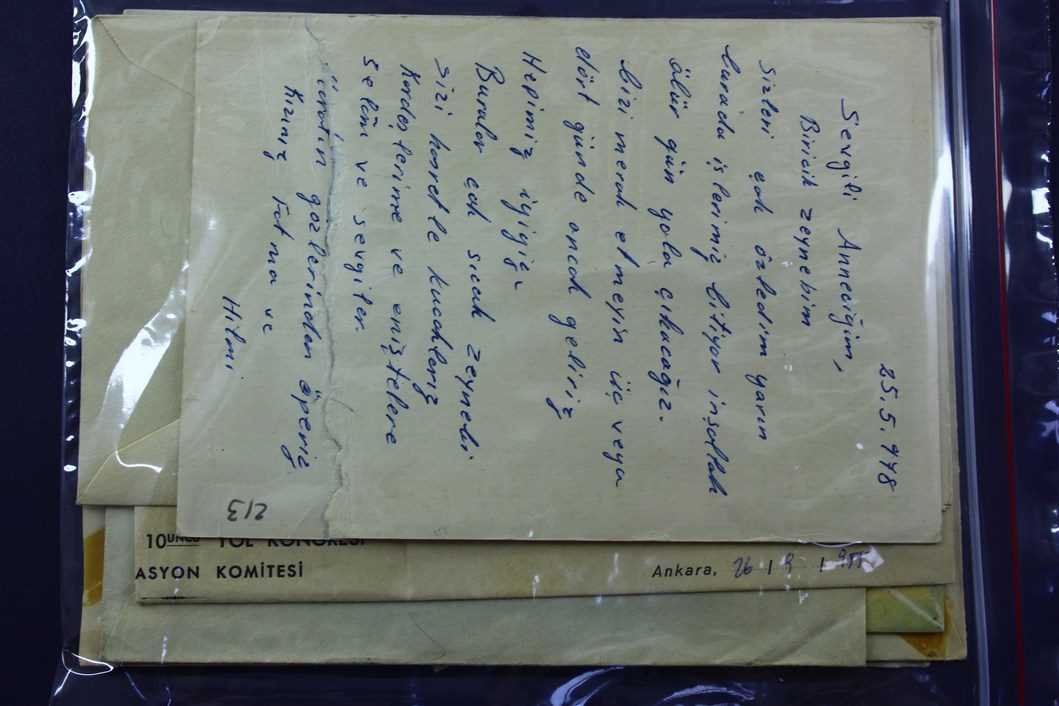 25.5.948
Sevgili Anneciğim,
Biricik Zeynebim
Sizleri çok özledim yarın
burada işlerimiz bitiyor inşallah
öbür gün yola çıkacağız.
bizi merak etmeyin üç veya
dört günde ancak geliriz
Hepimiz iyiyiz.
Buralar çok sıcak Zeynebi
sizi hasretle kucaklarız
Kardeşlerime ve eniştelere
selâm ve sevgiler.
Ümötün gözlerinden öperiz
Kızınız Fatma ve
Hilmi
213
10UNCU YOL KONGRESİ
ASYON KOMİTESİ
Ankara, 26 / 9 / 1955